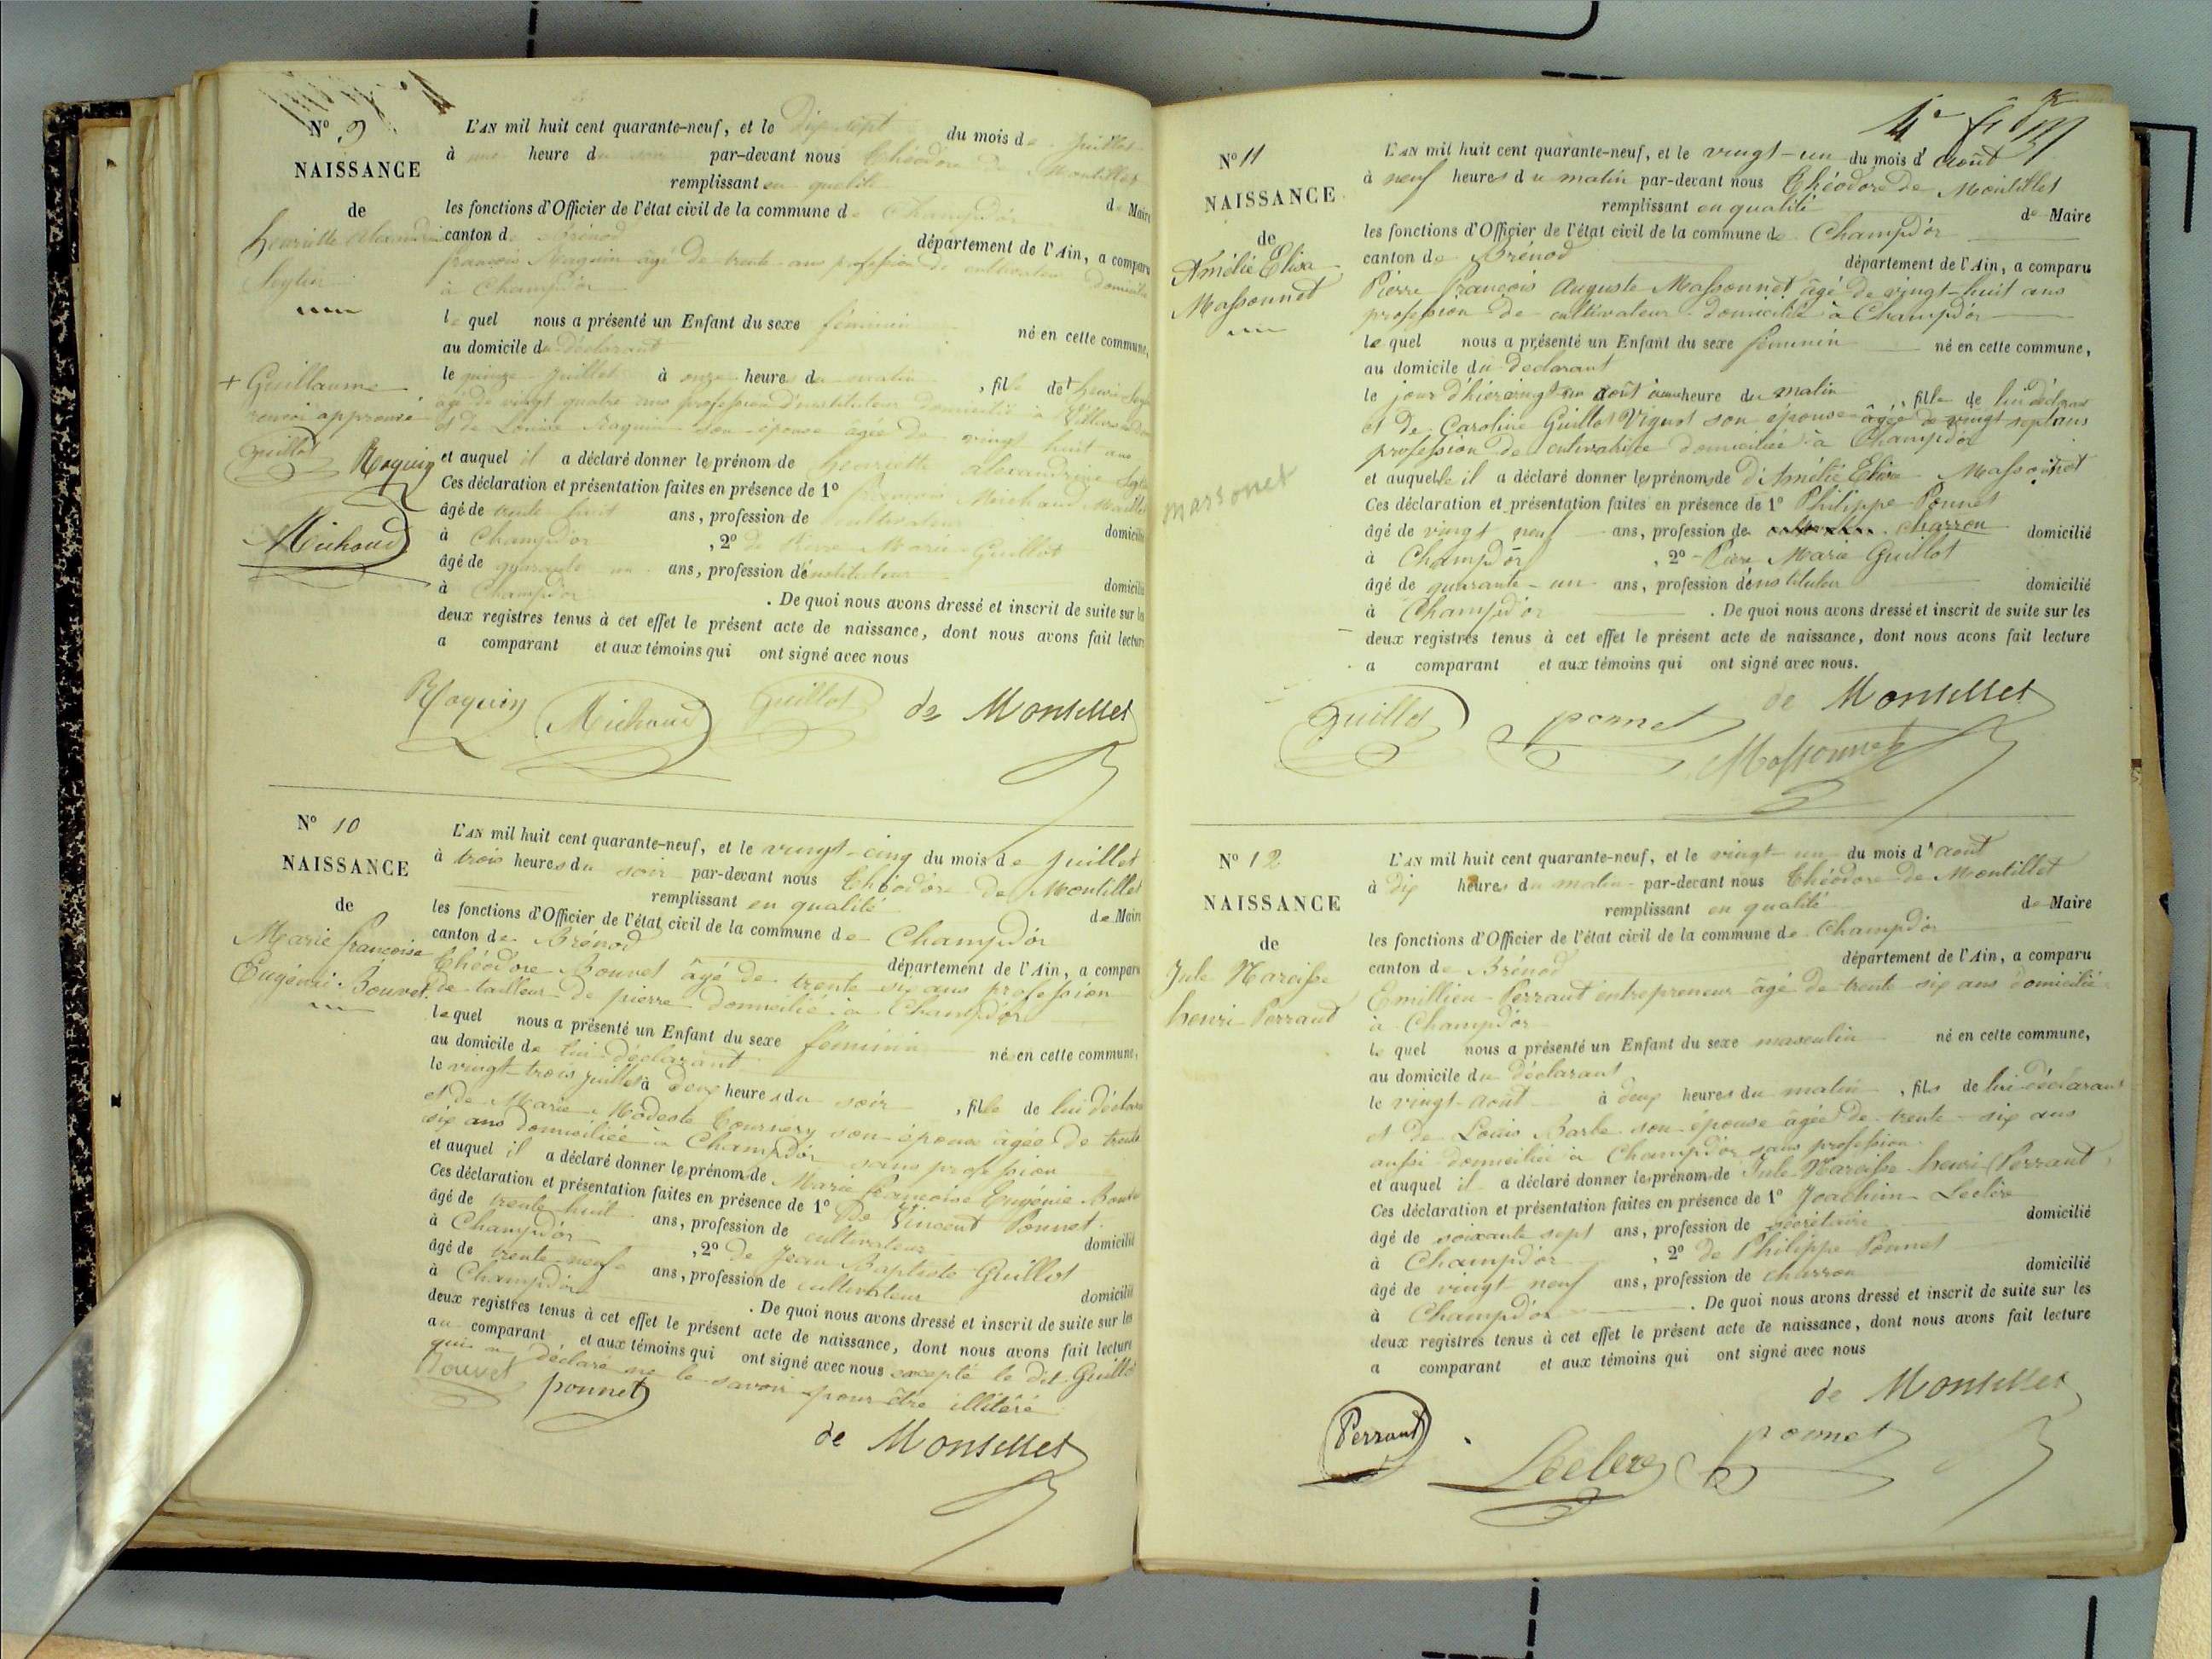 N° 9
NAISSANCE
de
henriette alexandrine
Seytier
+ Guillaume
renvoi approuvé
Guillot Raquin
Michaud
L'AN mil huit cent quarante-neuf, et le Dix sept du mois de juillet
à une heure du soir par-devant nous Théodore de Montillet
remplissant en qualité de Maire
les fonctions d'Officier de l'état civil de la commune de Champd'or
canton de Brénod département de l'Ain, a comparu
françois Raquin âgé de trente ans profession de cultivateur domicilié
à Champd'or
le quel nous a présenté un Enfant du sexe féminin né en cette commune,
au domicile du déclarant
le quinze juillet à onze heures du matin, fille de + henri
âgé de vingt quatre ans profession d'instituteur domicilié à
et de Louise Raquin son épouse âgée de vingt huit ans
et auquel il a déclaré donner le prénom de henriette alexandrine
Ces déclaration et présentation faites en présence de 1° françois Michaud
âgé de trente huit ans, profession de cultivateur domicilié
à Champd'or, 2° de Pierre Marie Guillot
âgé de quarante un ans, profession d'instituteur domicilié
à Champd'or. De quoi nous avons dressé et inscrit de suite sur les
deux registres tenus à cet effet le présent acte de naissance, dont nous avons fait lecture
a comparant et aux témoins qui ont signé avec nous
Raquin Michaud Guillot de Montillet
N° 10
NAISSANCE
de
Marie françoise
Eugénie Bouvet.
L'AN mil huit cent quarante-neuf, et le vingt-cinq du mois de juillet
à trois heures du soir par-devant nous Théodore de Montillet
remplissant en qualité de Maire
les fonctions d'Officier de l'état civil de la commune de Champd'or
canton de Brénod département de l'Ain, a comparu
Théodore Bouvet âgé de trente six ans profession
de tailleur de pierre domicilié à Champd'or
lequel nous a présenté un Enfant du sexe féminin né en cette commune,
au domicile de lui déclarant
le vingt-trois juillet à deux heures du soir, fille de lui déclarant
et de Marie Modeste Tournery son épouse âgée de trente
six ans domiciliée à Champd'or sans profession
et auquel il a déclaré donner le prénom de Marie françoise Eugénie Bouvet
Ces déclaration et présentation faites en présence de 1° de Vincent Ponnet
âgé de trente huit ans, profession de cultivateur domicilié
à Champd'or, 2° de Jean Baptiste Guillot
âgé de trente-neuf ans, profession de cultivateur domicilié
à Champd'or. De quoi nous avons dressé et inscrit de suite sur les
deux registres tenus à cet effet le présent acte de naissance, dont nous avons fait lecture
au comparant et aux témoins qui ont signé avec nous excepté le dit Guillot
qui a déclaré ne le savoir pour être illitéré
Bouvet ponnet
de Montillet
N° 11
NAISSANCE
de
Amélie Elisa
Massonnet
massonet
L'AN mil huit cent quarante-neuf, et le vingt-un du mois d'août
à neuf heures du matin par-devant nous Théodore de Montillet
remplissant en qualité de Maire
les fonctions d'Officier de l'état civil de la commune de Champd'or
canton de Brénod département de l'Ain, a comparu
Pierre françois Auguste Massonnet âgé de vingt-huit ans
profession de cultivateur domicilié à Champd'or
le quel nous a présenté un Enfant du sexe féminin né en cette commune,
au domicile du déclarant
le jour d'hier vingt août à heure du matin, fille de lui déclarant
et de Caroline Guillot Vignot son épouse âgée de vingt-sept ans
profession de cultivatrice domiciliée à Champd'or
et auquelle il a déclaré donner les prénoms de d'Amélie Elisa Massonnet
Ces déclaration et présentation faites en présence de 1° Philippe Ponnet
âgé de vingt neuf ans, profession de charron domicilié
à Champd'or, 2° Pierre Marie Guillot
âgé de quarante-un ans, profession d'instituteur domicilié
à Champd'or. De quoi nous avons dressé et inscrit de suite sur les
deux registres tenus à cet effet le présent acte de naissance, dont nous avons fait lecture
a comparant et aux témoins qui ont signé avec nous.
Guillot ponnet de Montillet
Massonnet
N° 12
NAISSANCE
de
Jule Narcisse
henri Perraut
L'AN mil huit cent quarante-neuf, et le vingt-un du mois d'août
à dix heures du matin par-devant nous Théodore de Montillet
remplissant en qualité de Maire
les fonctions d'Officier de l'état civil de la commune de Champd'or
canton de Brénod département de l'Ain, a comparu
Emillien Perraut entrepreneur âgé de trente six ans domicilié
à Champd'or
le quel nous a présenté un Enfant du sexe masculin né en cette commune,
au domicile du déclarant
le vingt août à deux heures du matin, fils de lui déclarant
et de Louis Barbe son épouse âgée de trente-six ans
aussi domiciliée à Champd'or sans profession.
et auquel il a déclaré donner les prénom de Jule Narcisse henri Perraut
Ces déclaration et présentation faites en présence de 1° Joachim Leclère
âgé de soixante sept ans, profession de secrétaire domicilié
à Champd'or, 2° de Philippe Ponnet
âgé de vingt neuf ans, profession de charron domicilié
à Champd'or. De quoi nous avons dressé et inscrit de suite sur les
deux registres tenus à cet effet le présent acte de naissance, dont nous avons fait lecture
a comparant et aux témoins qui ont signé avec nous
de Montillet
Perraut Leclerc ponnet